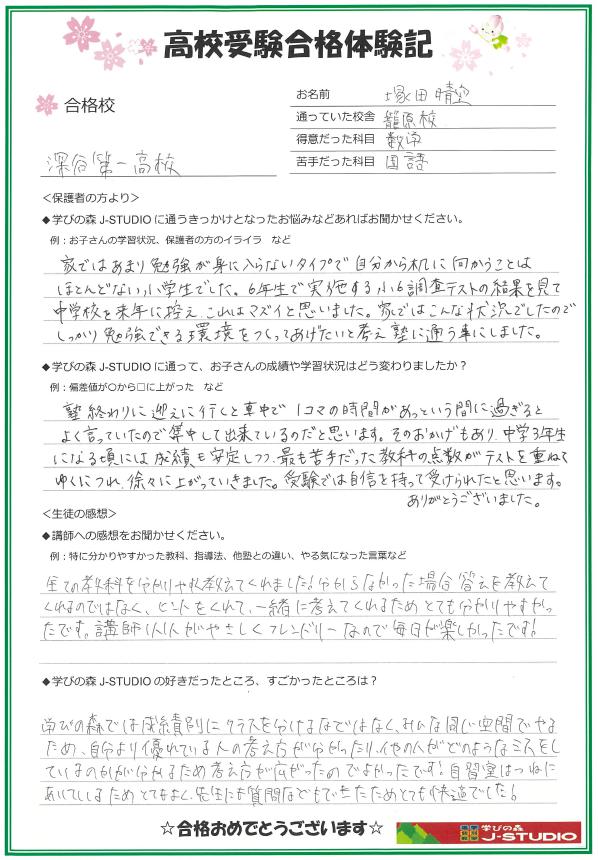 高校受験合格体験記
お名前 塚田晴空
通っていた校舎 籠原校
得意だった科目 数学
苦手だった科目 国語
合格校
深谷第一高校
＜保護者の方より＞
◆学びの森 J-STUDIOに通うきっかけとなったお悩みなどあればお聞かせください。
例：お子さんの学習状況、保護者の方のイライラ など
家ではあまり勉強が身に入らないタイプで自分から机に向かうことは
ほとんどない小学生でした。6年生で実施する小6調査テストの結果を見て
中学校を来年に控え、これはマズイと思いました。家ではこんな状況でしたので
しっかり勉強できる環境をつくってあげたいと考え塾に通う事にしました。
◆学びの森 J-STUDIOに通って、お子さんの成績や学習状況はどう変わりましたか？
例：偏差値が〇から□に上がった など
塾終わりに迎えに行くと車中で1コマの時間があっという間に過ぎると
よく言っていたので集中して出来ているのだと思います。そのおかげもあり、中学3年生
になる頃には成績も安定しつつ、最も苦手だった教科の点数がテストを重ねて
ゆくにつれ、徐々に上がっていきました。受験では自信を持って受けられたと思います。
ありがとうございました。
＜生徒の感想＞
◆講師への感想をお聞かせください。
例：特に分かりやすかった教科、指導法、他塾との違い、やる気になった言葉など
全ての教科を分かりやすく教えてくれました!分からなかった場合答えを教えて
くれるのではなく、ヒントをくれて、一緒に考えてくれるためとても分かりやすかっ
たです。講師1人1人がやさしくフレンドリーなので毎日が楽しかったです!
◆学びの森 J-STUDIOの好きだったところ、すごかったところは？
学びの森では成績別にクラスを分けるなではなく、みんな同じ空間でやる
ため、自分より優れている人の考え方が分かったり、他の人がどのようなミスをし
ているのかが分かるため考え方が広がったのでよかったです!自習室はつねに
あいているためとてもよく、先生にも質問などもできたためとても快適でした!
☆合格おめでとうございます☆
学びの森
J-STUDIO